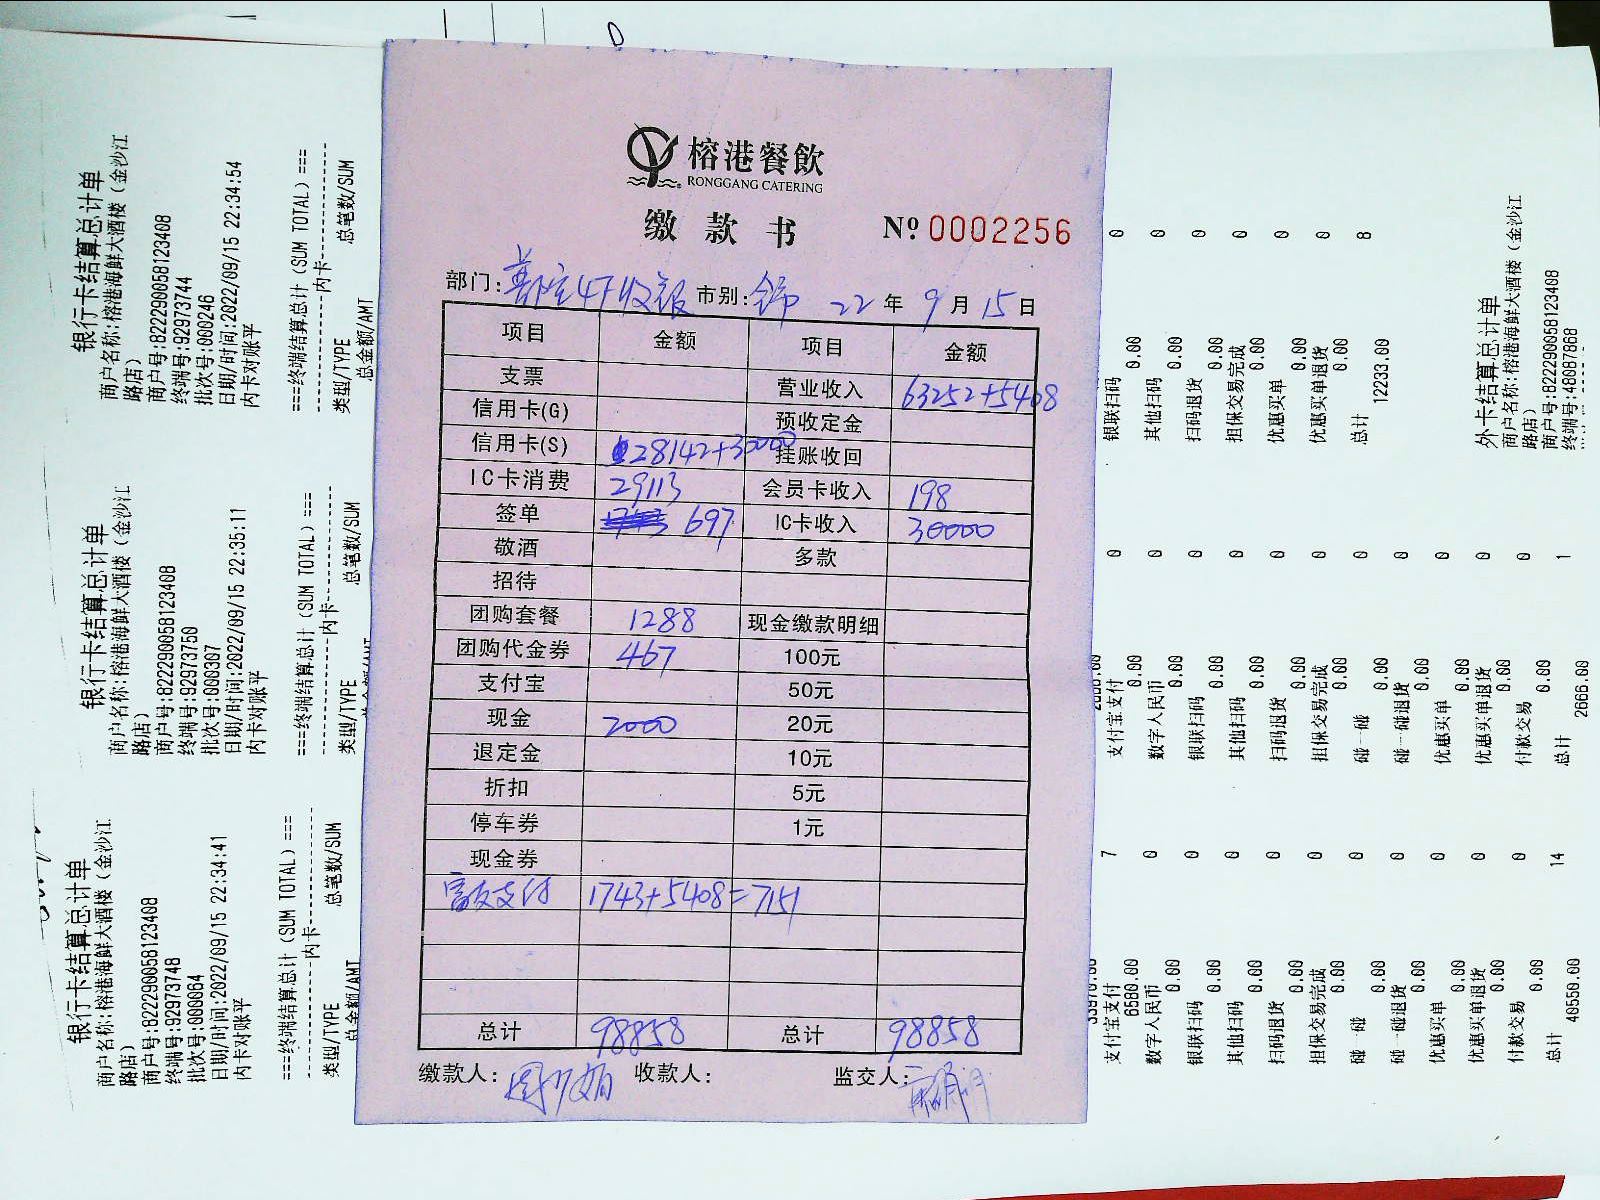 榕港餐飲
RONGGANG CATERING
缴款书 № 0002256
部门: 4F收银 市别: 22年9月15日
项目 金额 项目 金额
支票 营业收入 63252+5408
信用卡(G) 预收定金
信用卡(S) 28142+30000 挂账收回
IC卡消费 29113 会员卡收入 198
签单 697 IC卡收入 30000
敬酒 多款
招待
团购套餐 1288 现金缴款明细
团购代金券 467 100元
支付宝 50元
现金 2000 20元
退定金 10元
折扣 5元
停车券 1元
现金券
富友支付 1743+5408=7151
总计 98858 总计 98858
缴款人: 收款人: 监交人:
银行卡结算总计单
商户名称:榕港海鲜大酒楼（金沙江
路店）
商户号:822290058123408
终端号:92973744
批次号:000246
日期/时间:2022/09/15 22:34:54
内卡对账平
===终端结算总计(SUM TOTAL)===
内卡
类型/TYPE 总笔数/SUM
总金额/AMT
银行卡结算总计单
商户名称:榕港海鲜大酒楼（金沙江
路店）
商户号:822290058123408
终端号:92973750
批次号:000367
日期/时间:2022/09/15 22:35:11
内卡对账平
===终端结算总计(SUM TOTAL)===
内卡
类型/TYPE 总笔数/SUM
银行卡结算总计单
商户名称:榕港海鲜大酒楼（金沙江
路店）
商户号:822290058123408
终端号:92973748
批次号:000064
日期/时间:2022/09/15 22:34:41
内卡对账平
===终端结算总计(SUM TOTAL)===
内卡
类型/TYPE 总笔数/SUM
总金额/AMT
银联扫码 0
0.00
其他扫码 0
0.00
扫码退货 0
0.00
担保交易完成 0
0.00
优惠买单 0
0.00
优惠买单退货 0
0.00
总计 8
12233.00
外卡结算总计单
商户名称:榕港海鲜大酒楼（金沙江
路店）
商户号:822290058123408
终端号:48087868
支付宝支付 0
0.00
数字人民币 0
0.00
银联扫码 0
0.00
其他扫码 0
0.00
扫码退货 0
0.00
担保交易完成 0
0.00
碰一碰 0
0.00
碰一碰退货 0
0.00
优惠买单 0
0.00
优惠买单退货 0
0.00
付款交易 0
0.00
总计 1
2666.00
支付宝支付 7
6580.00
数字人民币 0
0.00
银联扫码 0
0.00
其他扫码 0
0.00
扫码退货 0
0.00
担保交易完成 0
0.00
碰一碰 0
0.00
碰一碰退货 0
0.00
优惠买单 0
0.00
优惠买单退货 0
0.00
付款交易 0
0.00
总计 14
40550.00